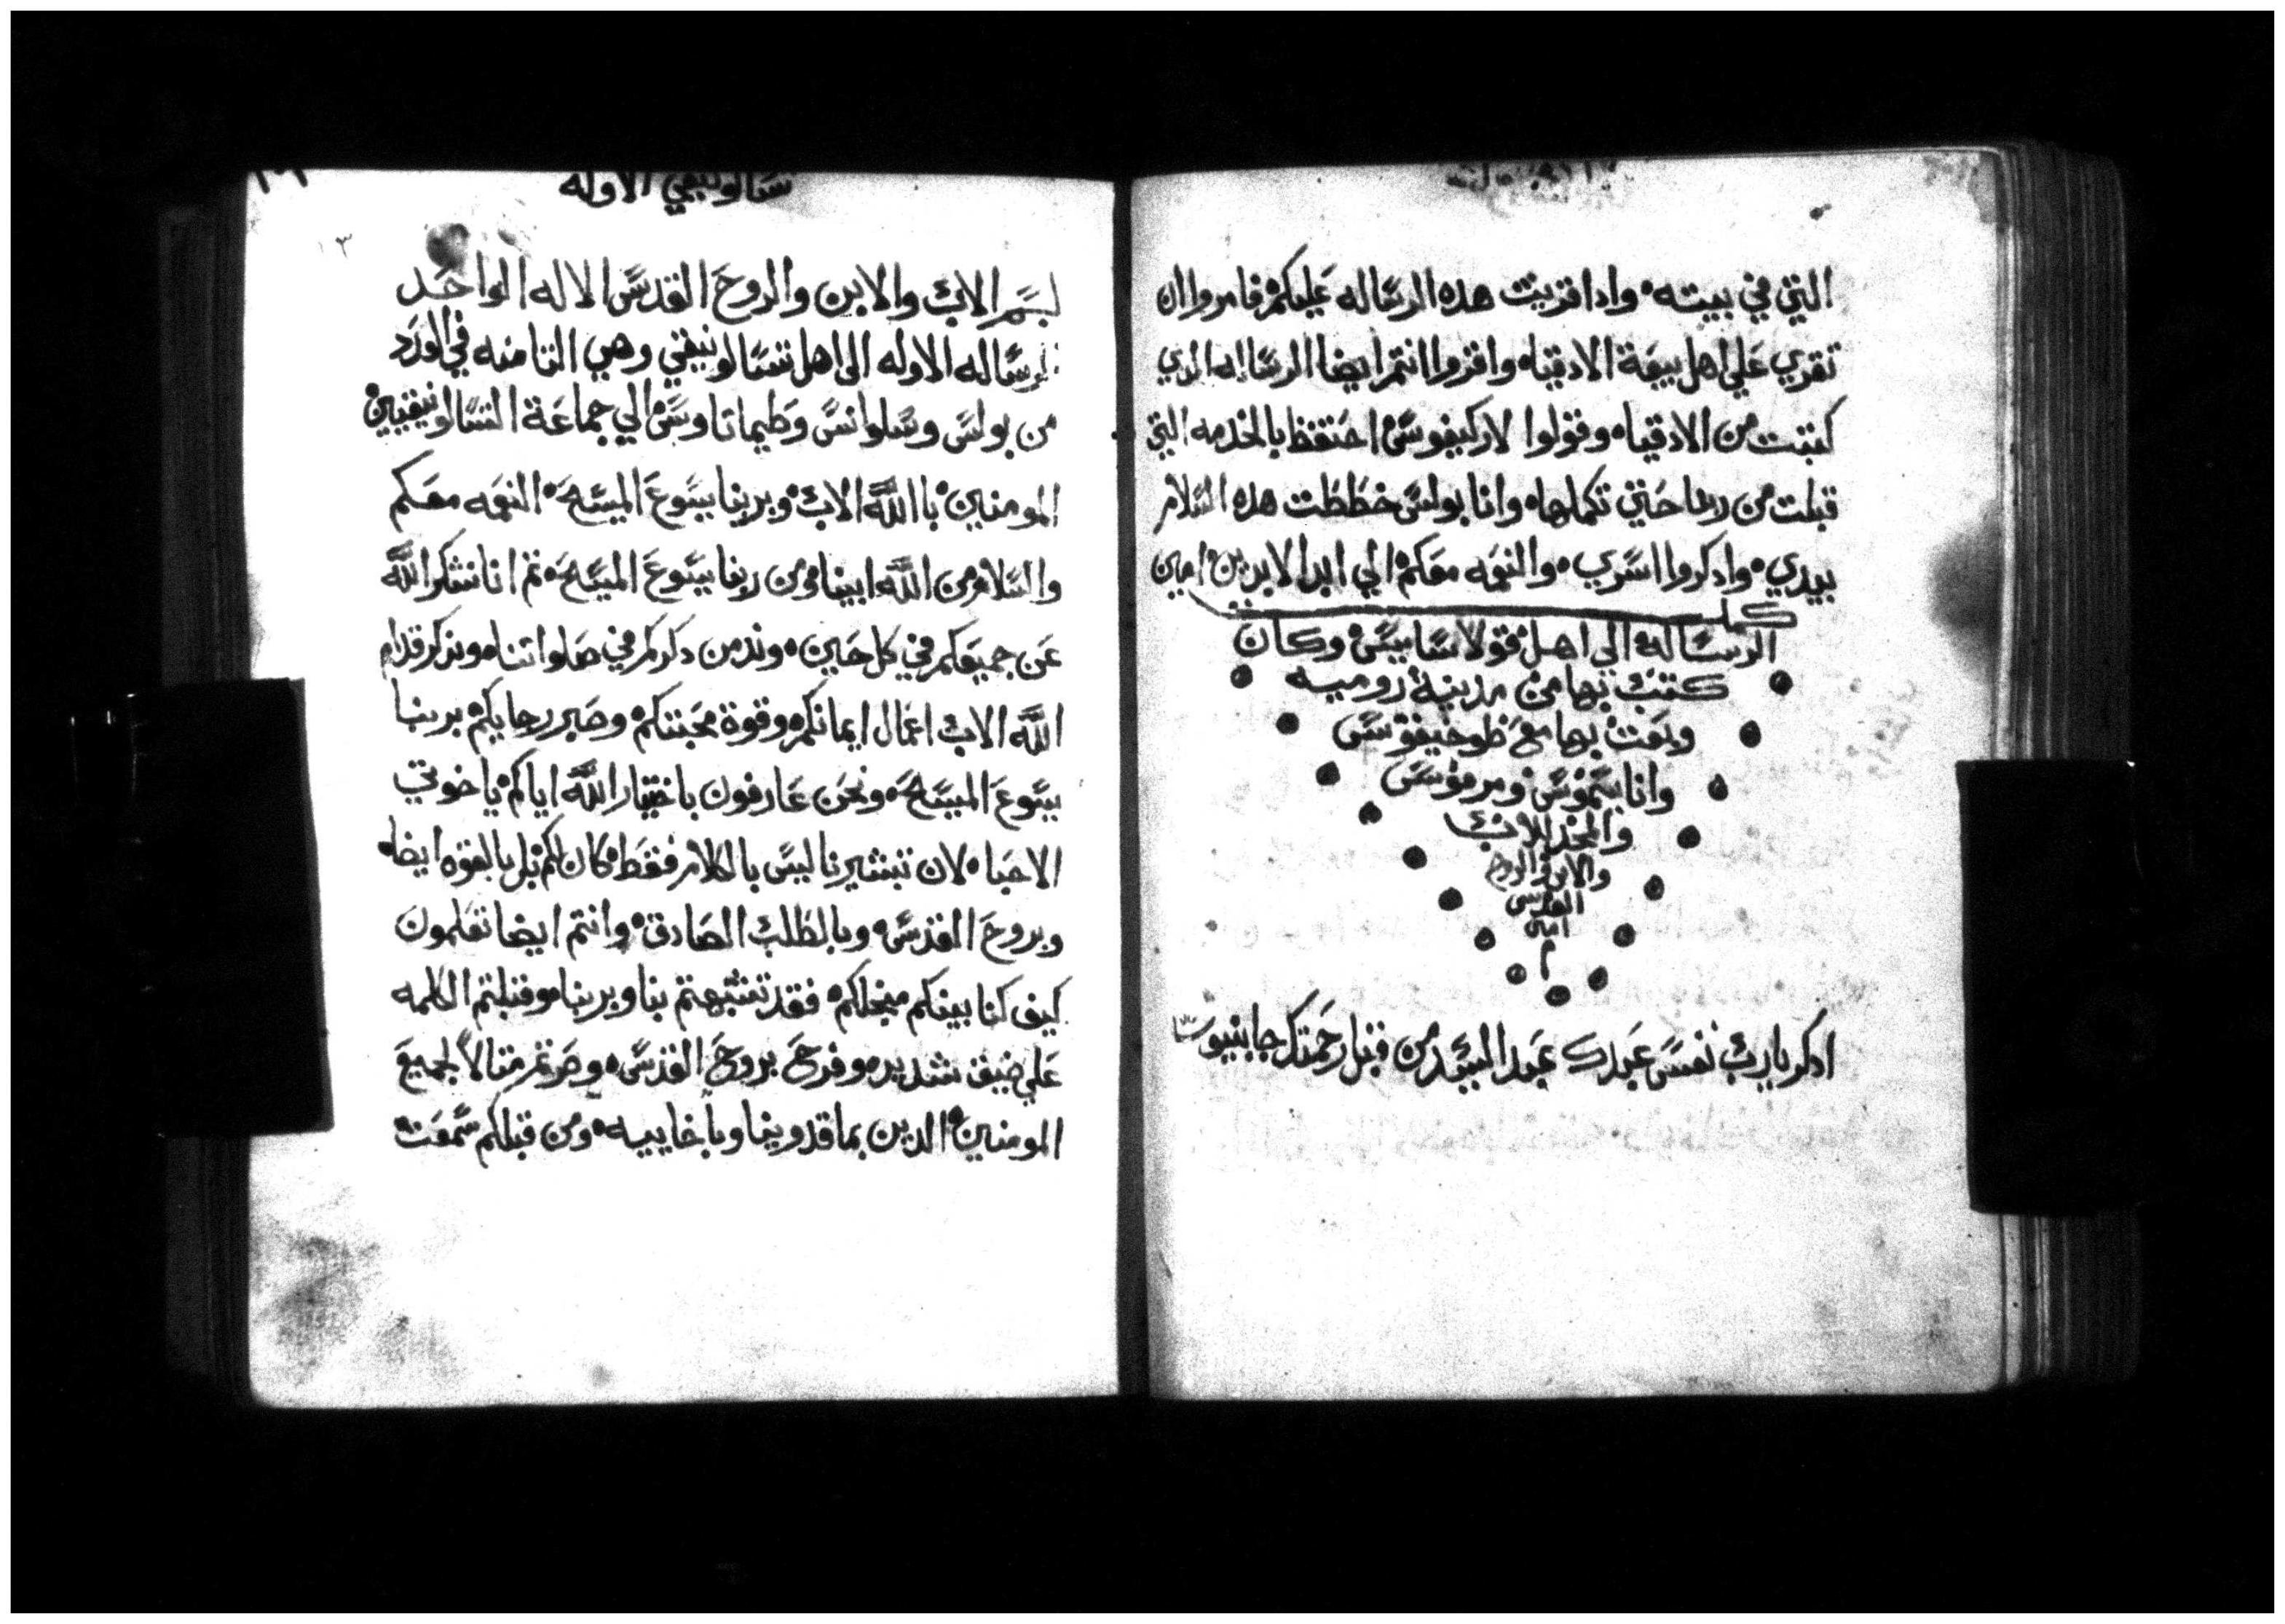 التي في بيته واذا قريت هده الرساله عليكم فامروا ان
تقري علي اهل بيعة الادقياه واقروا انتم ايضا الرساله الدي
كتبت من الادقياه وقولوا لاركيفوس احتفظ بالخدمه التي
قبلت من ربنا حتي تكملها وانا بولس خططت هده السلام
بيدي وادكروا اسري والنعمه معكم الي ابد الابدين امين
كملت
الرسالة الي اهل قولاسايس وكان
كتب بها من مدينة روميه
وبعث بها مع طوخيقوس
وانا سيموس ومرقوس
والمجد للاب
والابن والروح
القدس
امين
م
ادكر يارب نفس عبدك عبد المسيد من قبل رحمتك
تسالونيقي الاوله
١٣
لبسم الاب والابن والروح القدس الاله الواحد
الرساله الاوله الى اهل تسالونيقي وهي التامنه في العدد
من بولس وسلوانس وطيماتاوس الي جماعة التسالونيقيين
المومنين باالله الاب وبربنا يسوع المسيح النعمه معكم
والسلام من الله ابينا ومن ربنا يسوع المسيح تم انا نشكر الله
عن جميعكم في كل حين وندمن دكركم في صلواتنا وندكر قدام
الله الاب اعمال ايمانكم وقوة محبتكم وصبر رجايكم بربنا
يسوع المسيح ونحن عارفون باختيار الله اياكم ياخوتي
الاحبا لان تبشيرنا ليس بالكلام فقط كان لكم بل بالقوه ايضا
وبروح القدس وبالطلب الصادق وانتم ايضا تعلمون
كيف كنا بينكم مبجلكم فقد تشبهتم بنا وبربنا وقبلتم الكلمه
علي ضيق شديد وفرح بروح القدس وصرتم متالا لجميع
المومنين الدين بماقدونيا وباخاييه ومن قبلكم سمعت